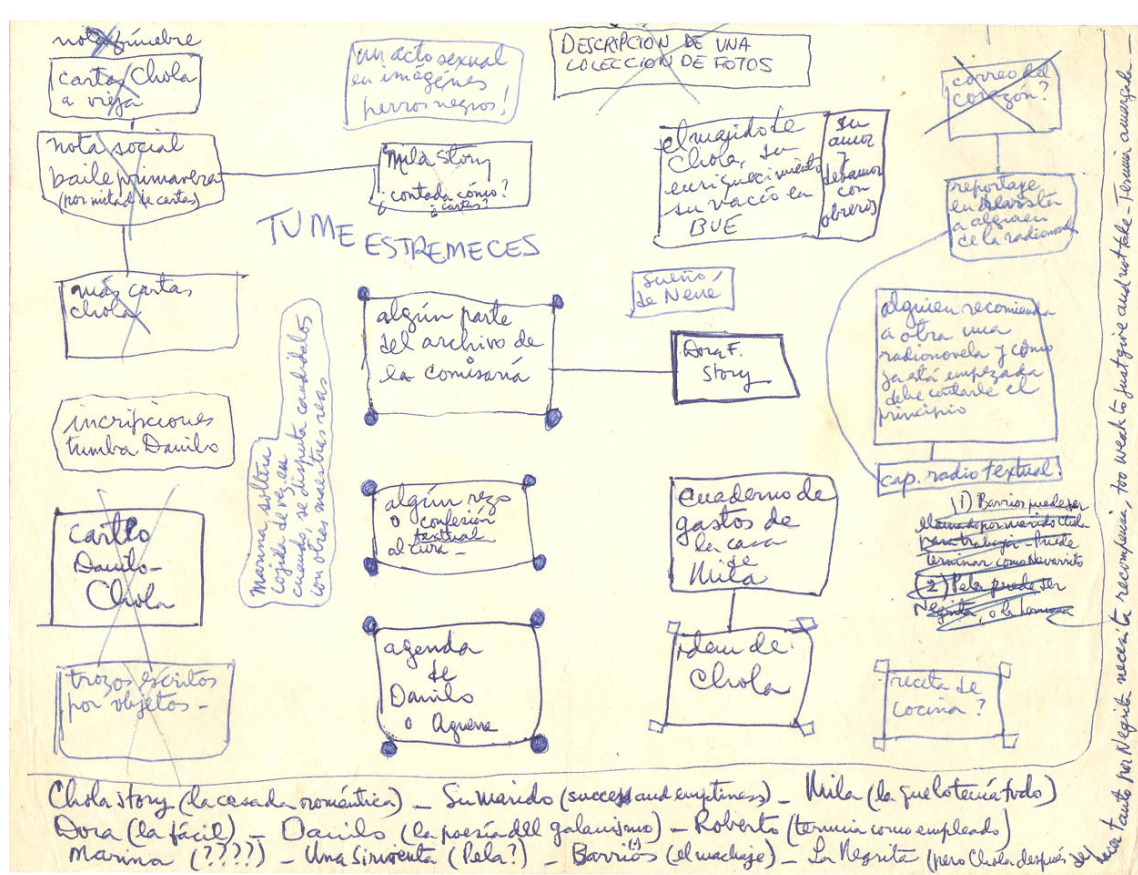 nota fúnebre
carta Chola
a vieja
nota social
baile primavera
(por mitad de cartas)
más cartas
Chola
incripciones
tumba Danilo
carta
Danilo-
Chola
trozos escritos
por objetos -
un acto sexual
en imágenes
perros negros!
Mila Story
contada cómo?
¿cartas?
TU ME ESTREMECES
algún parte
del archivo de
la comisaría
Marina, soltera
cojida de vez en
cuando, se disputa candidatos
con otras maestras reas
algún rezo
o confesión
textual
al cura -
agenda
de
Danilo
o
DESCRIPCION DE UNA
COLECCION DE FOTOS
el marido de
Chola, su
enriquecimiento
su vacío en
BUE
su
amor
y
desamor
con
obreros
sueño
de Nene
Dora F.
Story
cuaderno de
gastos de
la casa
de
Mila
idem de
Chola
correo del
corazón?
reportaje
en revista
a alguien
de la radionovela
alguien recomienda
a otra una
radionovela y cómo
ya está empezada
debe contarle el
principio
cap. radio textual
1) Barrios puede ser
llamado por marido Chola
para trabajar - Puede
terminar como Navarrito
(2) Pela puede ser
Negrita, o la hermana
receta de
cocina?
Chola story (la casada romántica) - Su marido (success and emptiness) - Mila (la que lo tenía todo)
Dora (la fácil) - Danilo (la poesía del galanismo) - Roberto (termina como empleado)
Marina (????) - Una sirvienta (Pela?) - Barrios (el machaje) - La Negrita (pero Chola después de
hacer tanto por Negrita necesita recompensa, too weak to just give and not take - Termina amargada -